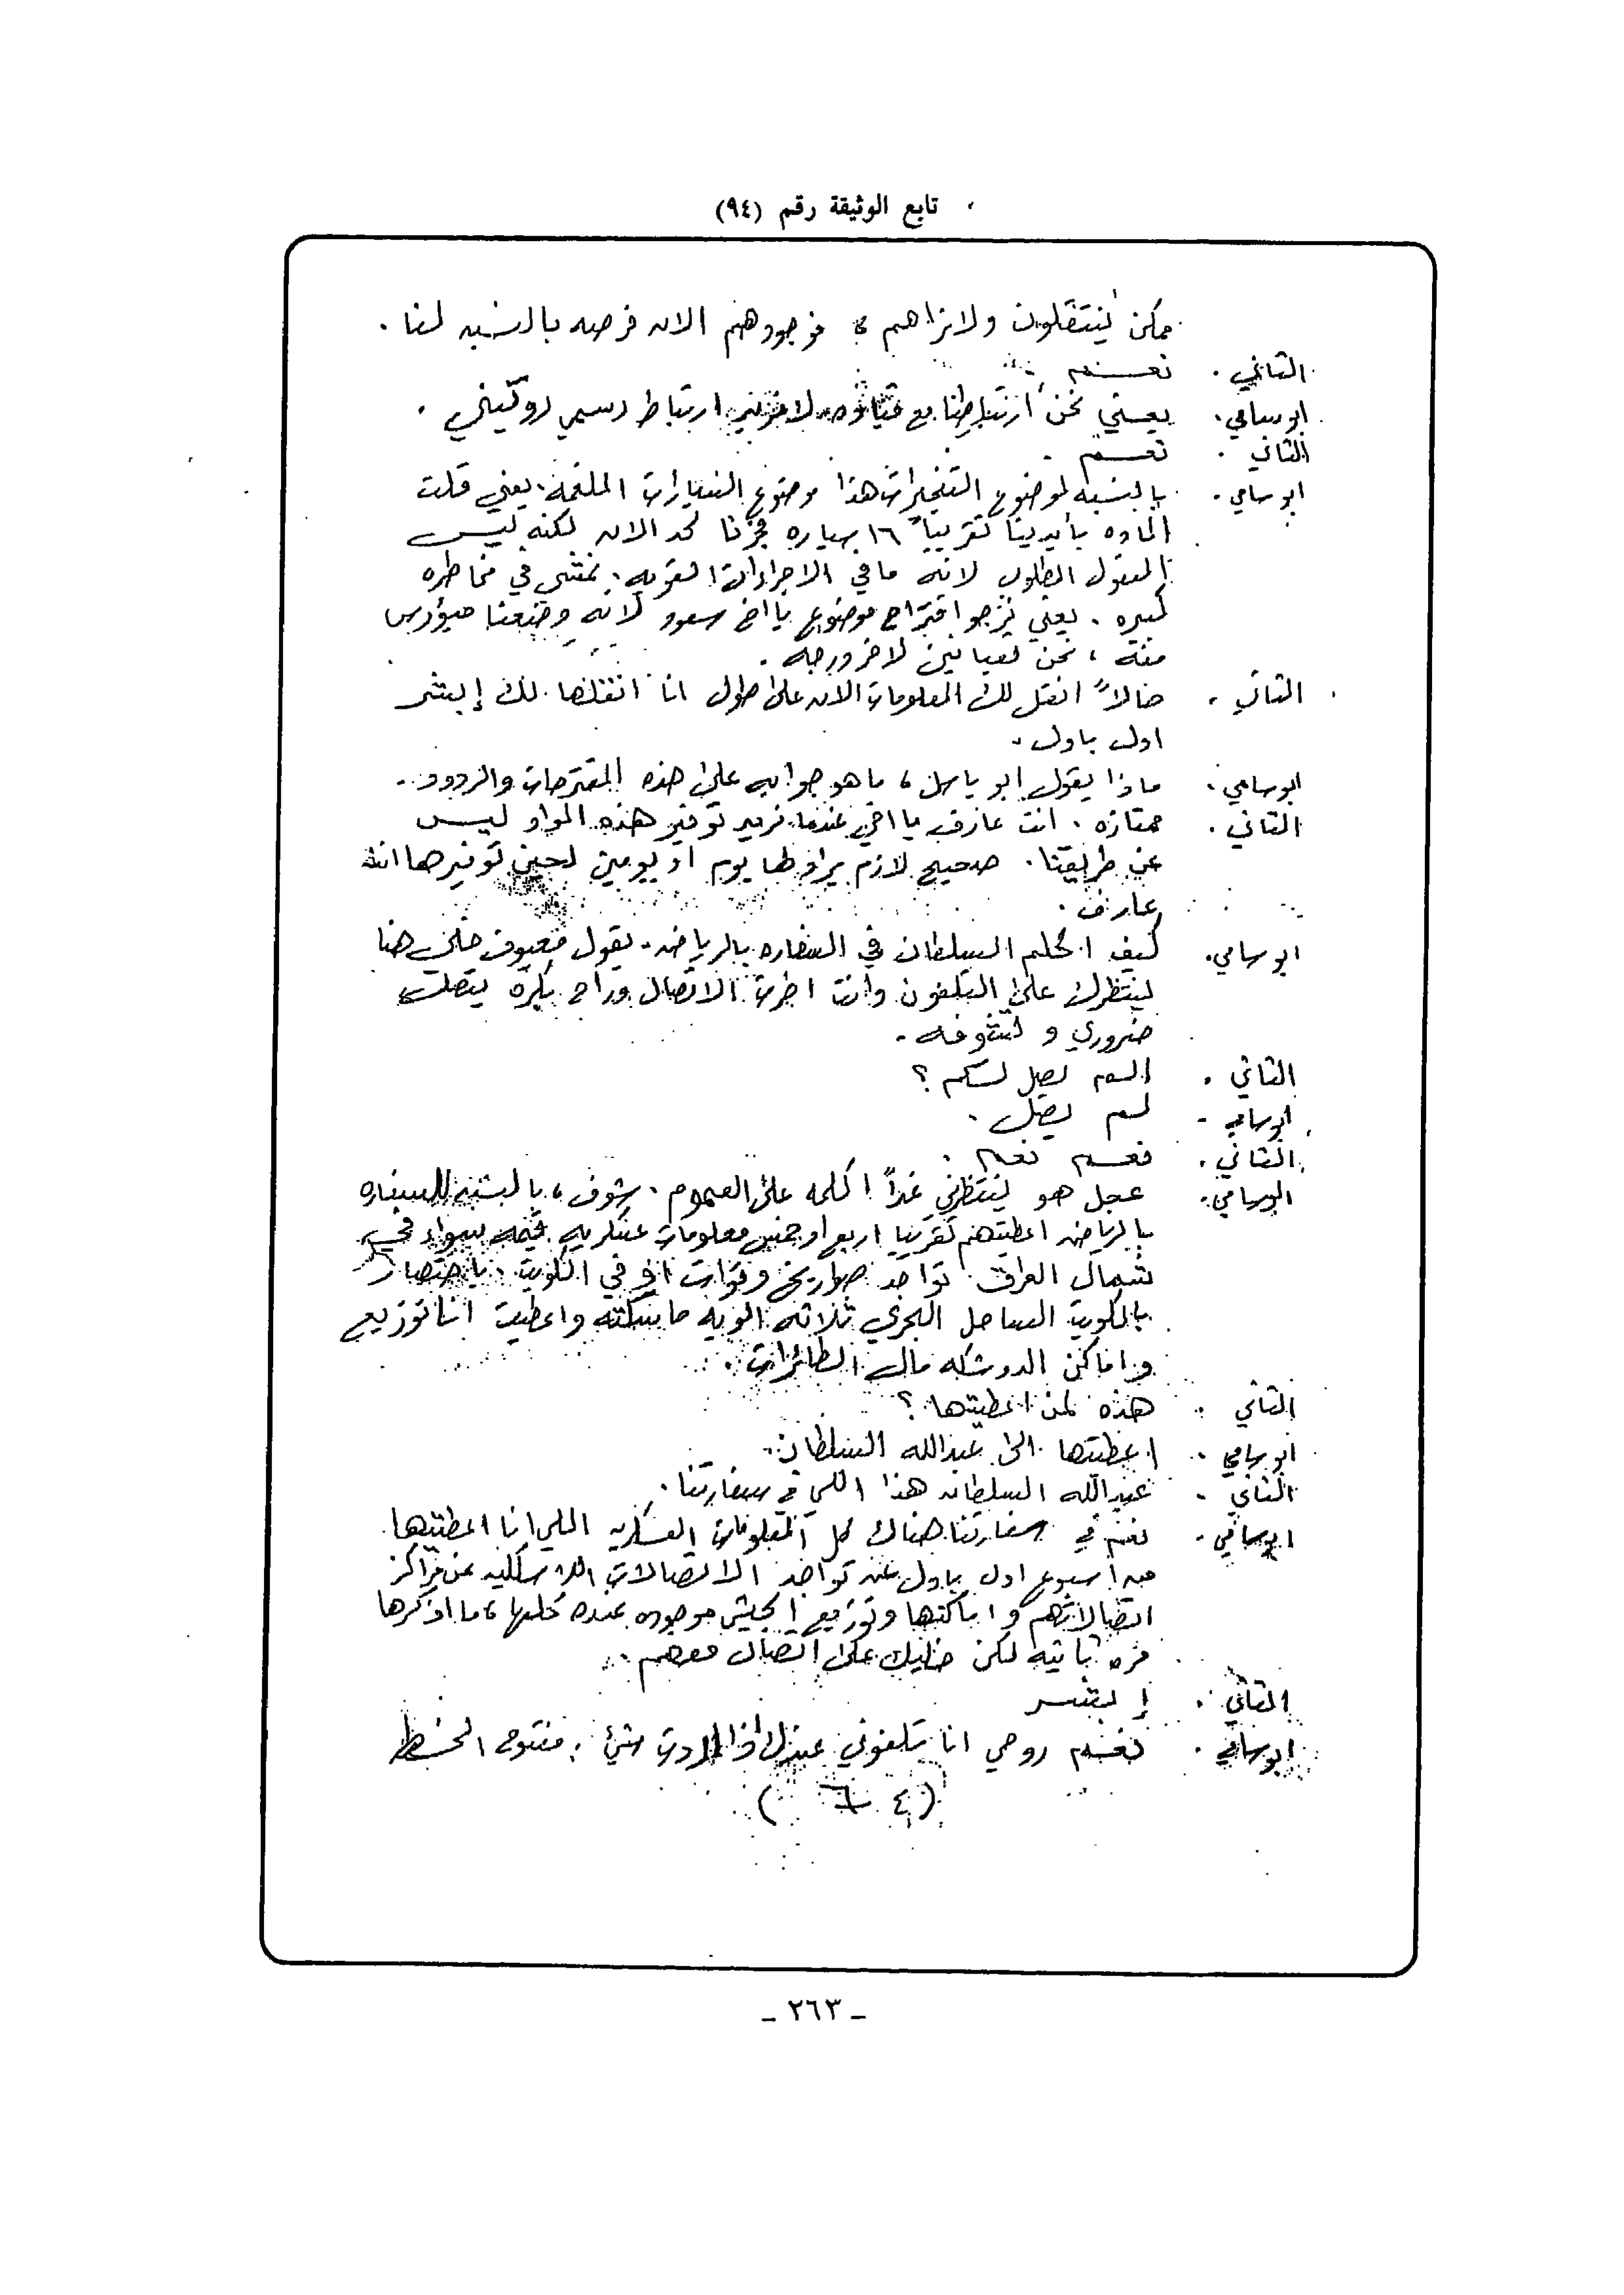 تابع الوثيقة رقم (٩٤)
ممكن ينتقلون ولا نراهم ، فوجودهم الان فرصه بالنسبه لنا .
الثاني . نعم
ابو سامي . يعني نحن ارتباطنا مع ارتباط رسمي روتيني .
الثاني . نعم .
ابو سامي . بالنسبه لموضوع التفجيرات هذا موضوع السيارات الملغمه . يعني قلت
الماده بأيدينا تقريباً ١٦ سياره فجرنا لحد الان لكنه ليس
المعقول المطلوب لانه ما في الاجراءات القويه . نمشي في مخاطره
كبيره . يعني نرجو اقتراح موضوع يا اخ سعود لانه وضعنا ميؤوس
منه ، نحن تعبانين لاخر درجه .
الثاني . حالاً انقل لك المعلومات الان على طول انا انقلها لك إبشر
اول باول .
ابو سامي . ماذا يقول ابو باسل ، ما هو جوابه على هذه المقترحات والردود .
الثاني . ممتازه . انت عارف يا اخي عندما نريد توفير هذه المواد ليس
عن طريقنا . صحيح لازم يوم او يومين لحين توفيرها انت
عارف .
ابو سامي . كيف اكلم السلطان في السفاره بالرياض . يقول
ينتظرك على التلفون وانت الاتصال وراح بكره يتصلك
ضروري و .
الثاني . الم يصل لكم ؟
ابو سامي . لم يصل .
الثاني . نعم نعم .
ابو سامي . عجل هو ينتظرني غداً اكلمه على العموم . شوف ، بالنسبه للسفاره
بالرياض اعطيتهم تقريبا اربع او خمس معلومات عسكريه قيمه سواء في
شمال العراق تواجد صواريخ وقوات او في الكويت . باختصار
بالكويت الساحل البحري ثلاثه الويه ماسكته واعطيت انا توزيع
واماكن الدوشكه مال الطائرات .
الثاني . هذه لمن اعطيتها ؟
ابو سامي . اعطيتها الى عبدالله السلطان .
الثاني . عبدالله السلطان هذا اللي في سفارتنا .
ابو سامي . نعم في سفارتنا هناك كل المعلومات العسكريه اللي انا اعطيتها
من اسبوع اول باول عن تواجد الاتصالات اللاسلكيه عن مراكز
اتصالاتهم و اماكنها وتوزيع الجيش موجوده عنده كلها ، ما اذكرها
مره ثانيه لكن خليك على اتصال معهم .
الثاني . إبشر
ابو سامي . نعم روحي انا تلفوني عندك اذا اردت شئ . مفتوح الخط
(٤ - ٦)
ـ ٢٦٣ ـ